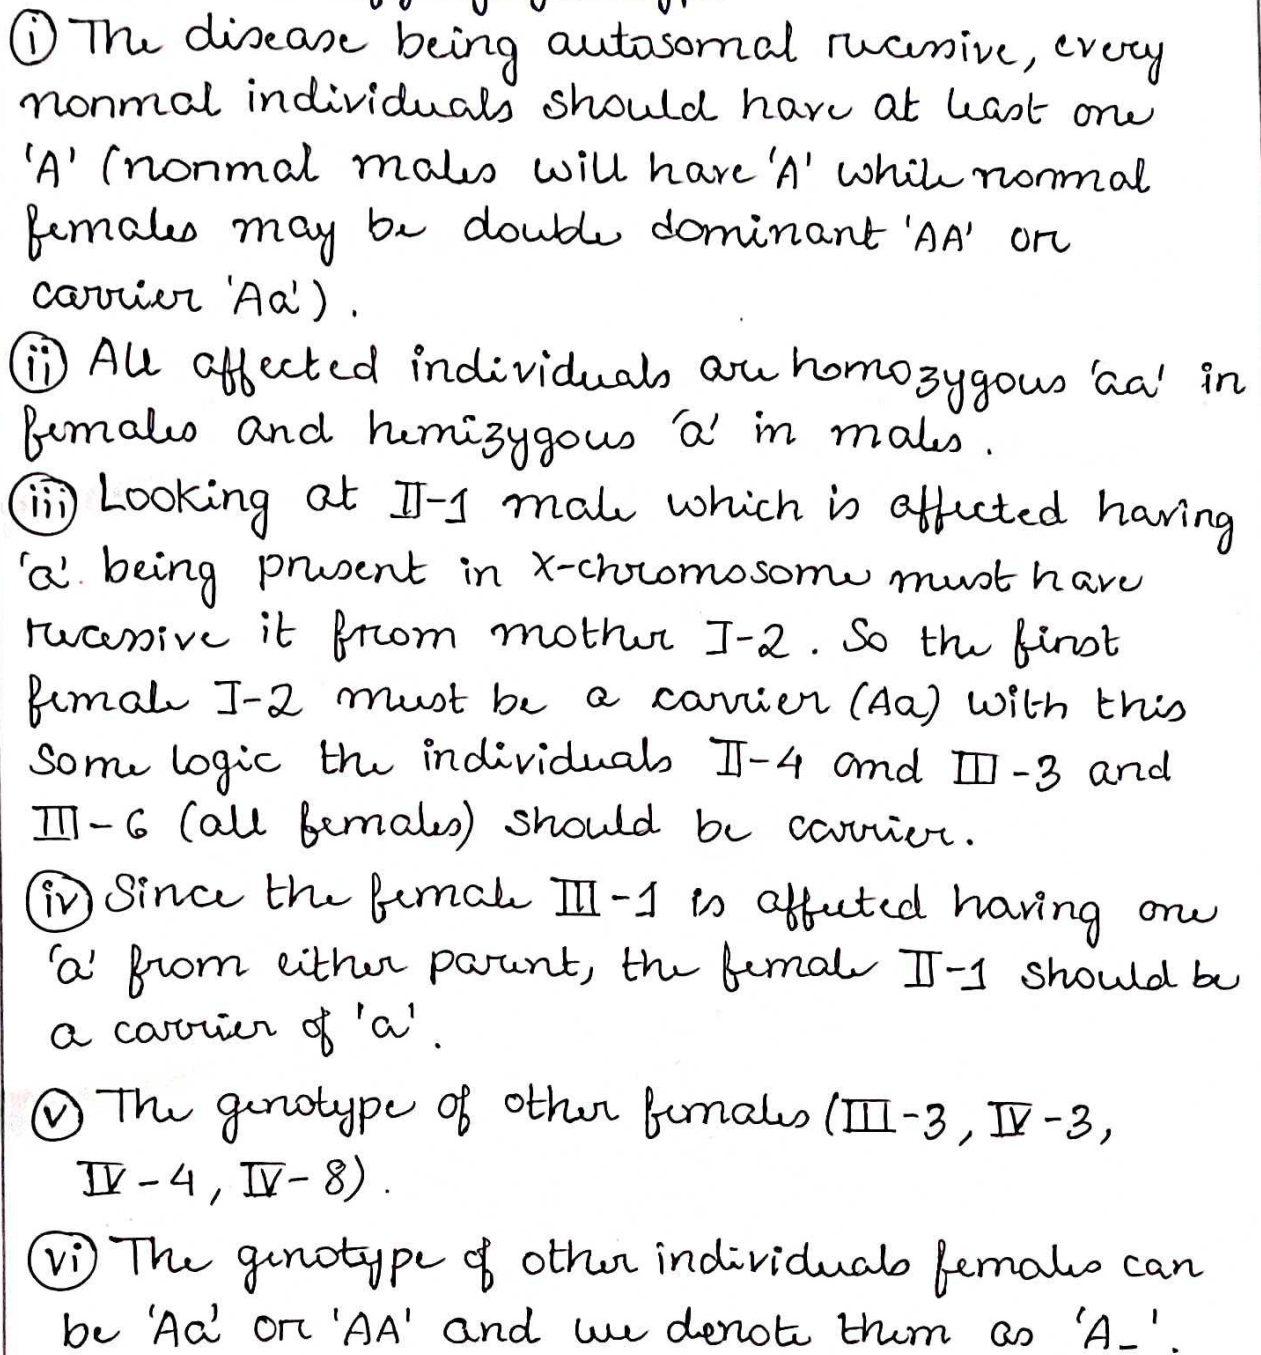 (i) The disease being autosomal recessive, every
nonmal individuals should have at least one
'A' (nonmal males will have 'A' while nonmal
females may be double dominant 'AA' or
carrier 'Aa').
(ii) All affected individuals are homozygous 'aa' in
females and hemizygous 'a' in males.
(iii) Looking at II-1 male which is affected having
'a'. being present in X-chromosome must have
recessive it from mother I-2. So the first
female I-2 must be a carrier (Aa) with this
some logic the individuals II-4 and III-3 and
III-6 (all females) should be carrier.
(iv) Since the female III-1 is affected having one
'a' from either parent, the female II-1 should be
a carrier of 'a'.
(v) The genotype of other females (III-3, IV-3,
IV-4, IV-8).
(vi) The genotype of other individuals females can
be 'Aa' or 'AA' and we denote them as 'A_'.